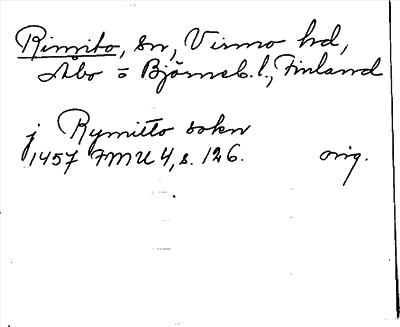 Rimito, sn, Virmo hd,
Åbo = Björneb. l., Finland
j Rymitto sokn
1457 FMU 4, s. 126. orig.